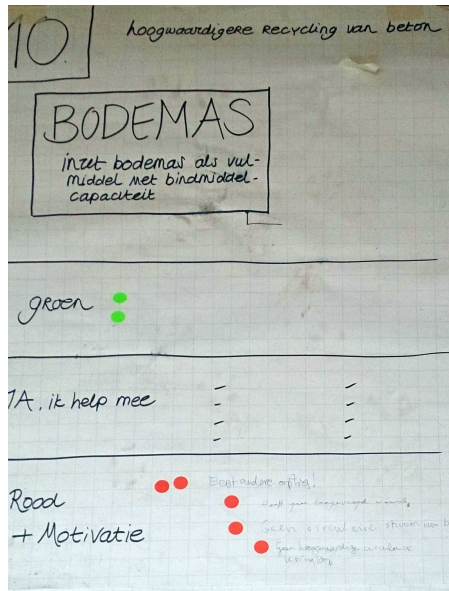 10.
hoogwaardigere Recycling van beton
BODEMAS
inzet bodemas als vul-
middel met bindmiddel-
capaciteit
groen
JA, ik help mee
Rood
+ Motivatie
Eerst andere opties!
heeft geen toegevoegd waarde
Geen circulaire
Geen hoogwaardig